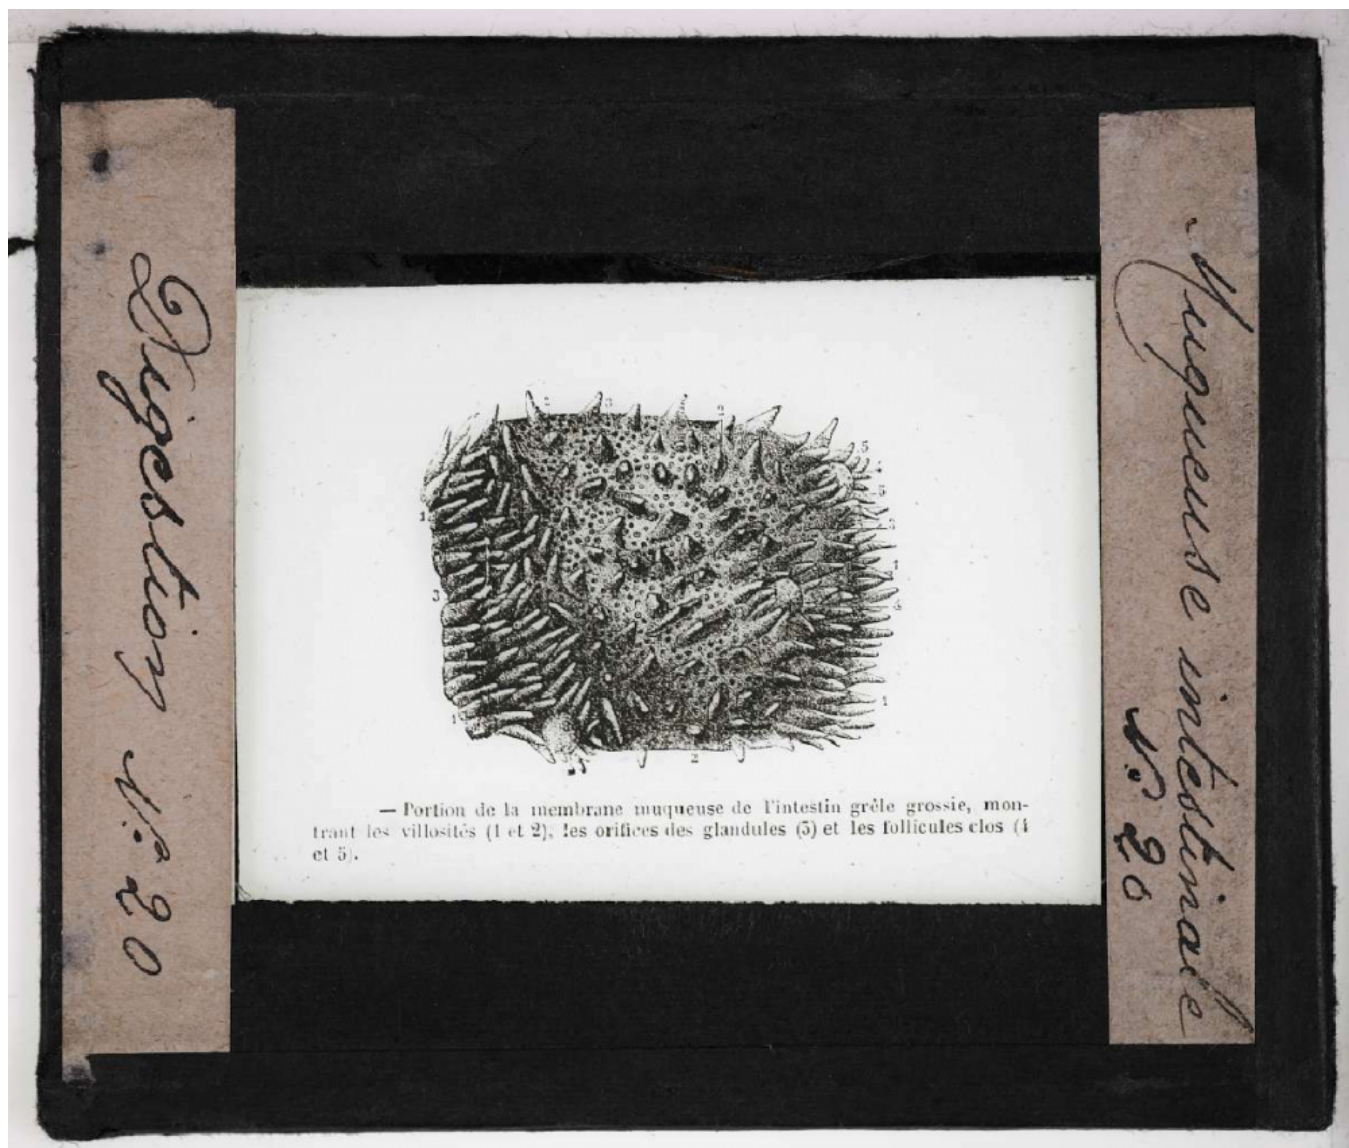 Digestion N.º 20
— Portion de la membrane muqueuse de l'intestin grêle grossie, mon-
trant les villosités (1 et 2), les orifices des glandules (3) et les follicules clos (4
et 5).
2
3
2
5
1
3
1
4
1
1
2
Muqueuse intestinale
N.º 20